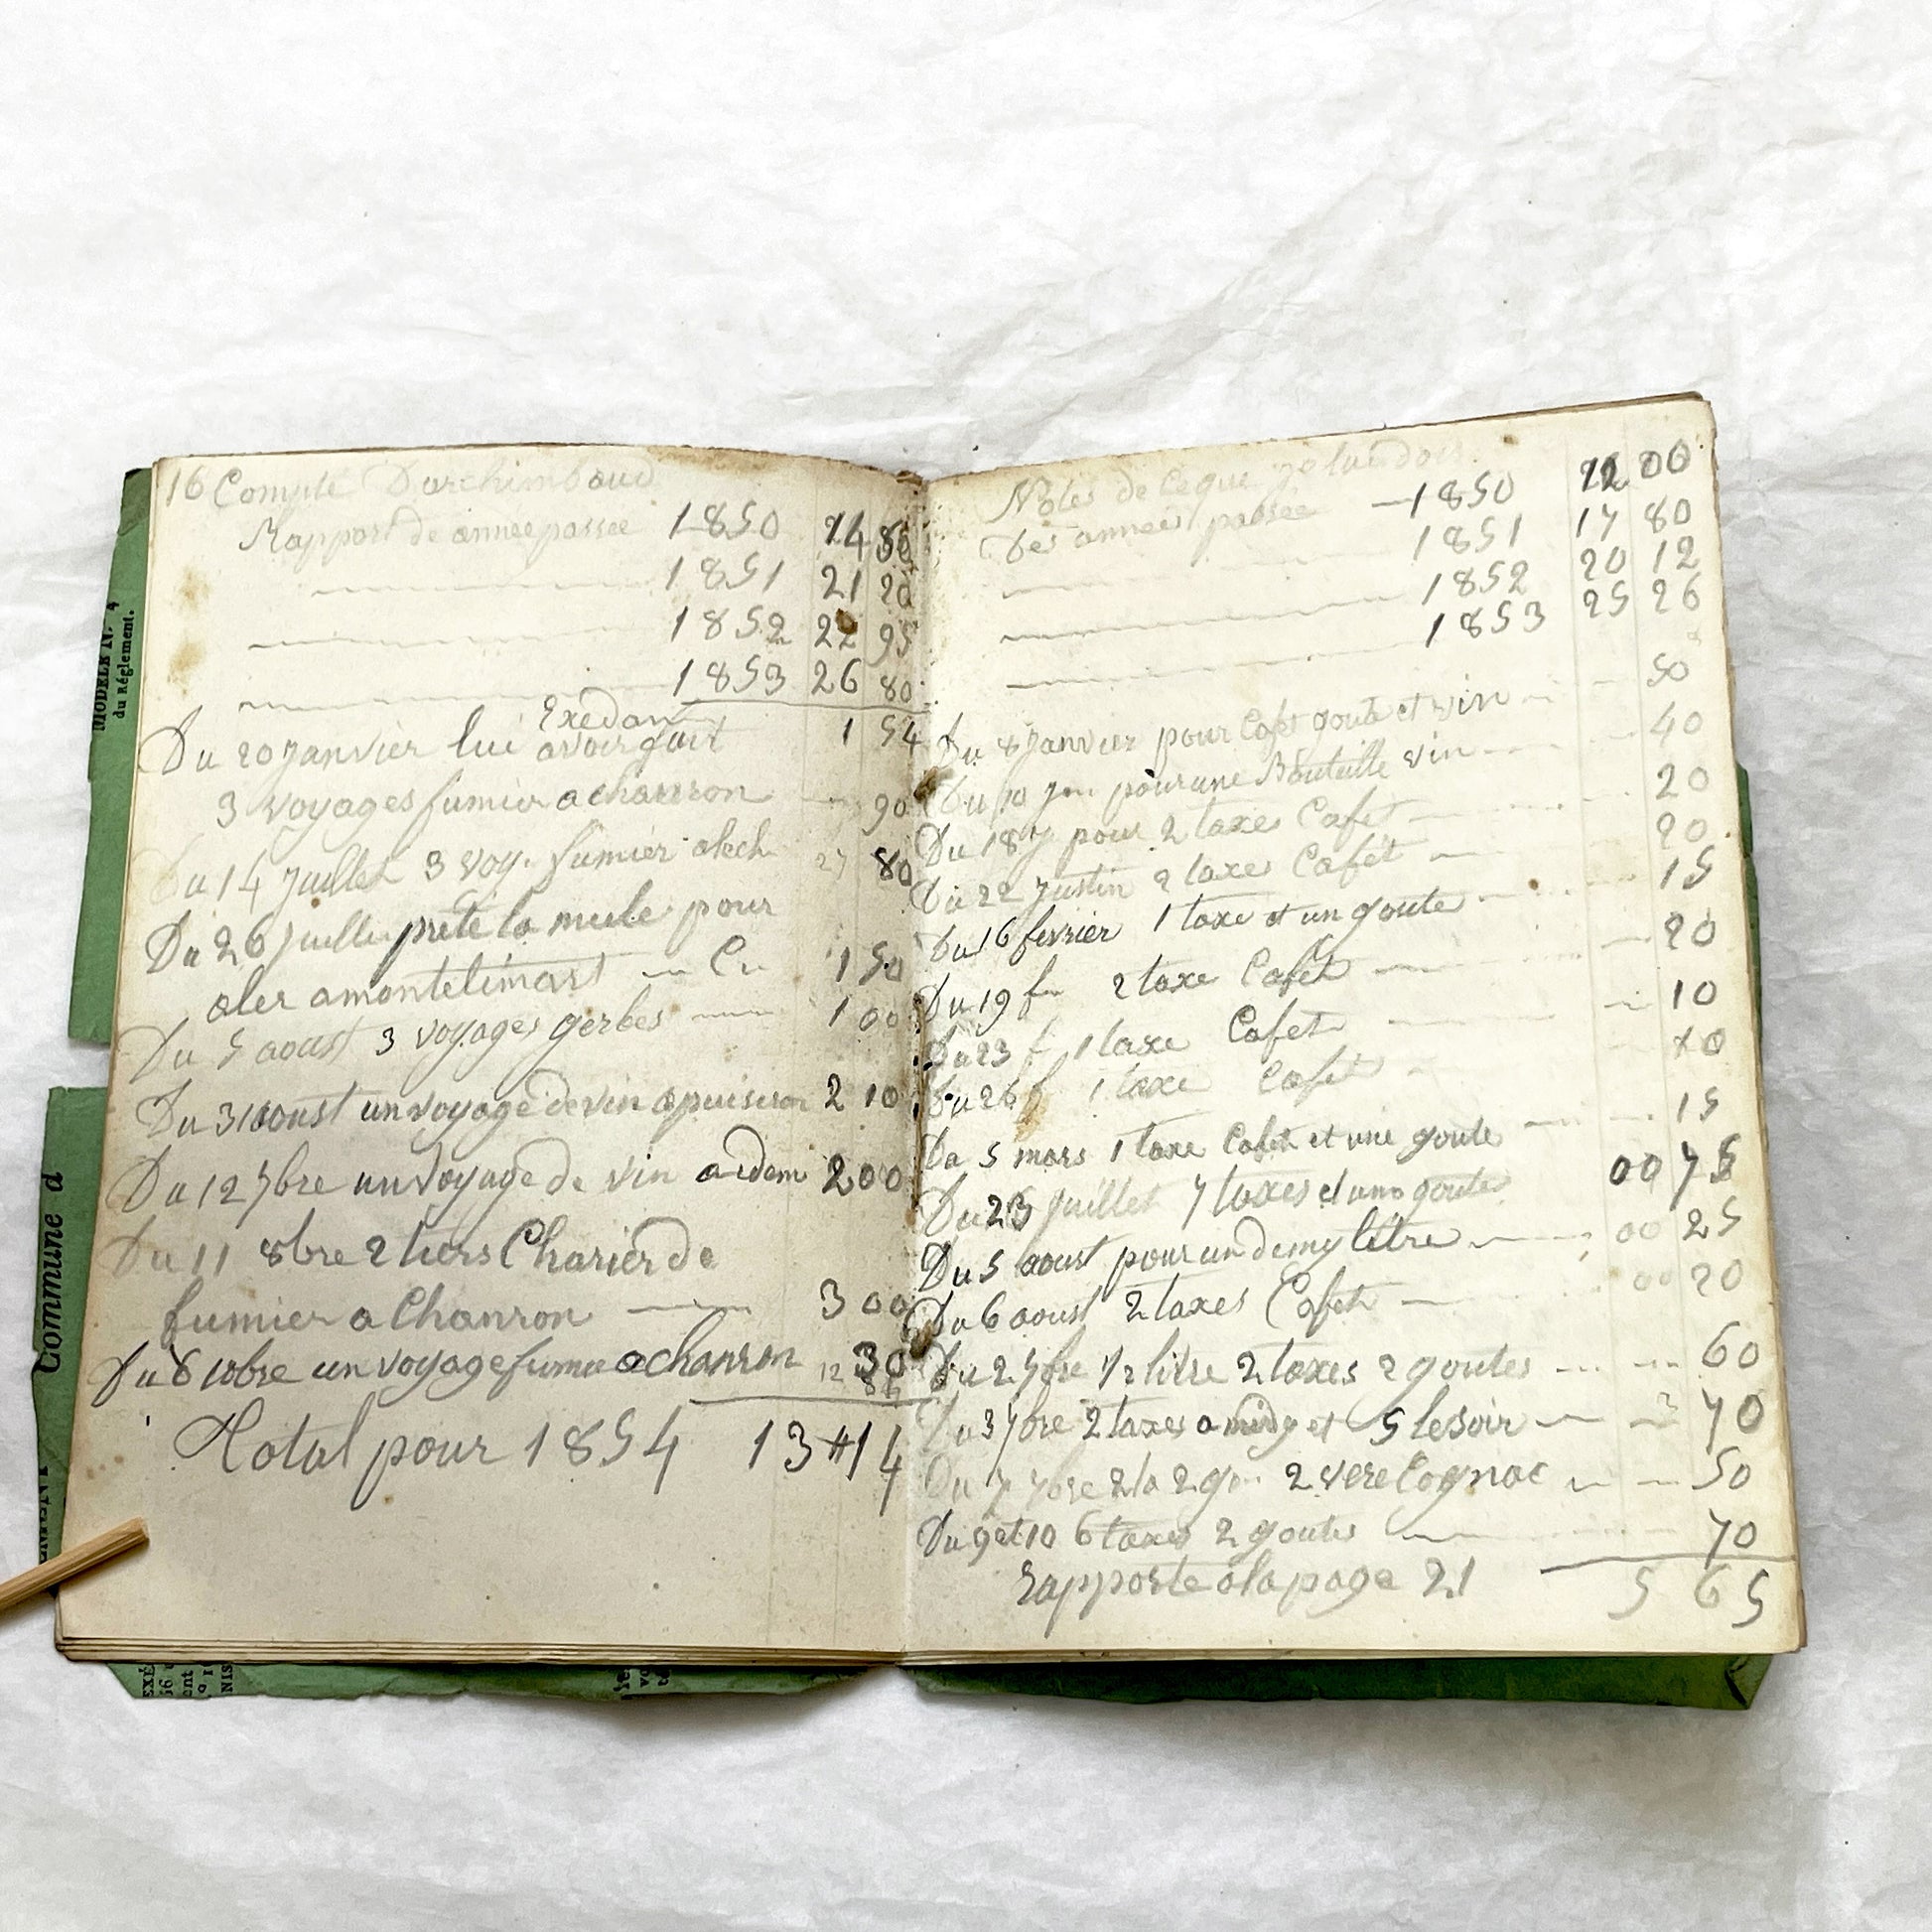 16 Compte Darchimbaud
Rapport de année passée 1850 14 80
1851 21 20
1852 22 95
1853 26 80
Exedan 1 54
Du 20 janvier lui avoir fait
3 voyages fumier a chanron 90
Du 14 juillet 3 voy. fumier 80
Du 26 juillet prete la mule pour
aler a montelimart 1 50
Du 5 aoust 3 voyages gerbes 1 00
Du 31 aoust un voyage de vin a puiseron 2 10
Du 12 7bre un voyage de vin a idem 2 00
Du 11 8bre 2 tiers Charier de
fumier a Chanron 3 00
Du 8 10bre un voyage fumie a chanron 30
Total pour 1854 13 #14
Notes de Ceque je lui dois
Des année passée 1850 12 00
1851 17 80
1852 20 12
1853 25 26
Du 8 janvier pour Cafet goute et vin 50
Du 10 jer pour une Bouteille vin 40
Du 18 j pour 2 taxes Cafet 20
Du 22 justin 2 taxes Cafet 20
Du 16 fevrier 1 taxe et un goute 15
Du 19 f 2 taxe Cafet 20
Du 23 f 1 taxe Cafet 10
Du 26 f 1 taxe Cafet 10
Du 5 mars 1 taxe Cafet et une goute 15
Du 23 juillet 7 taxes et une goute 00 75
Du 5 aoust pour un demy litre 00 25
Du 6 aoust 2 taxes Cafet 00 20
Du 2 7bre 1/2 litre 2 taxes 2 goutes 60
Du 3 7bre 2 taxes a midy et 5 le soir 70
Du 7 7bre 2 ta 2 go 2 vere Cognac 50
Du 9 et 10 6 taxes 2 goutes 70
rapporte a la page 21 5 65
MODELE N. 4
du Réglement.
Commune d